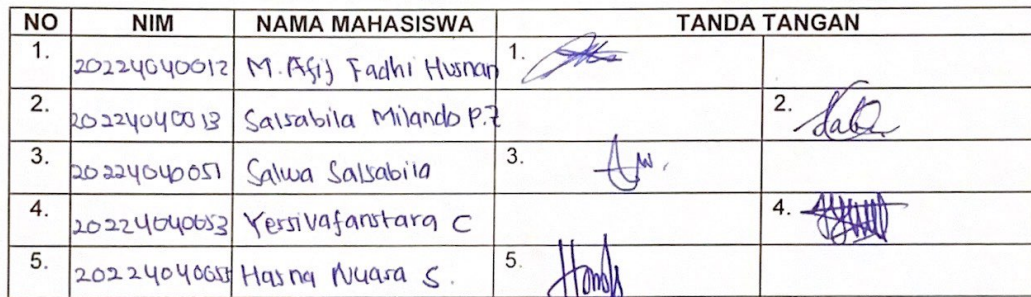 NO NIM NAMA MAHASISWA TANDA TANGAN
1. 20224040012 M. Afif Fadhi Husnan 1.
2. 20224040013 Salsabila Milando P.Z 2.
3. 20224040051 Salwa Salsabila 3.
4. 20224040053 Yersivafanstara C 4.
5. Hasna Nuara S. 5.